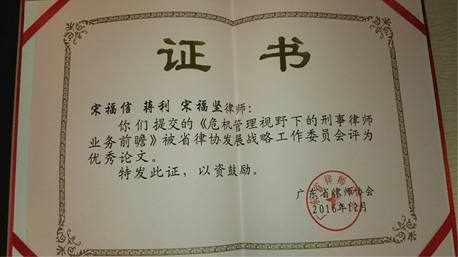 证书
宋福信 蒋利 宋福坚律师：
你们提交的《危机管理视野下的刑事律师
业务前瞻》被省律协发展战略工作委员会评为
优秀论文。
特发此证，以资鼓励。
广东省律师协会
2016年12月